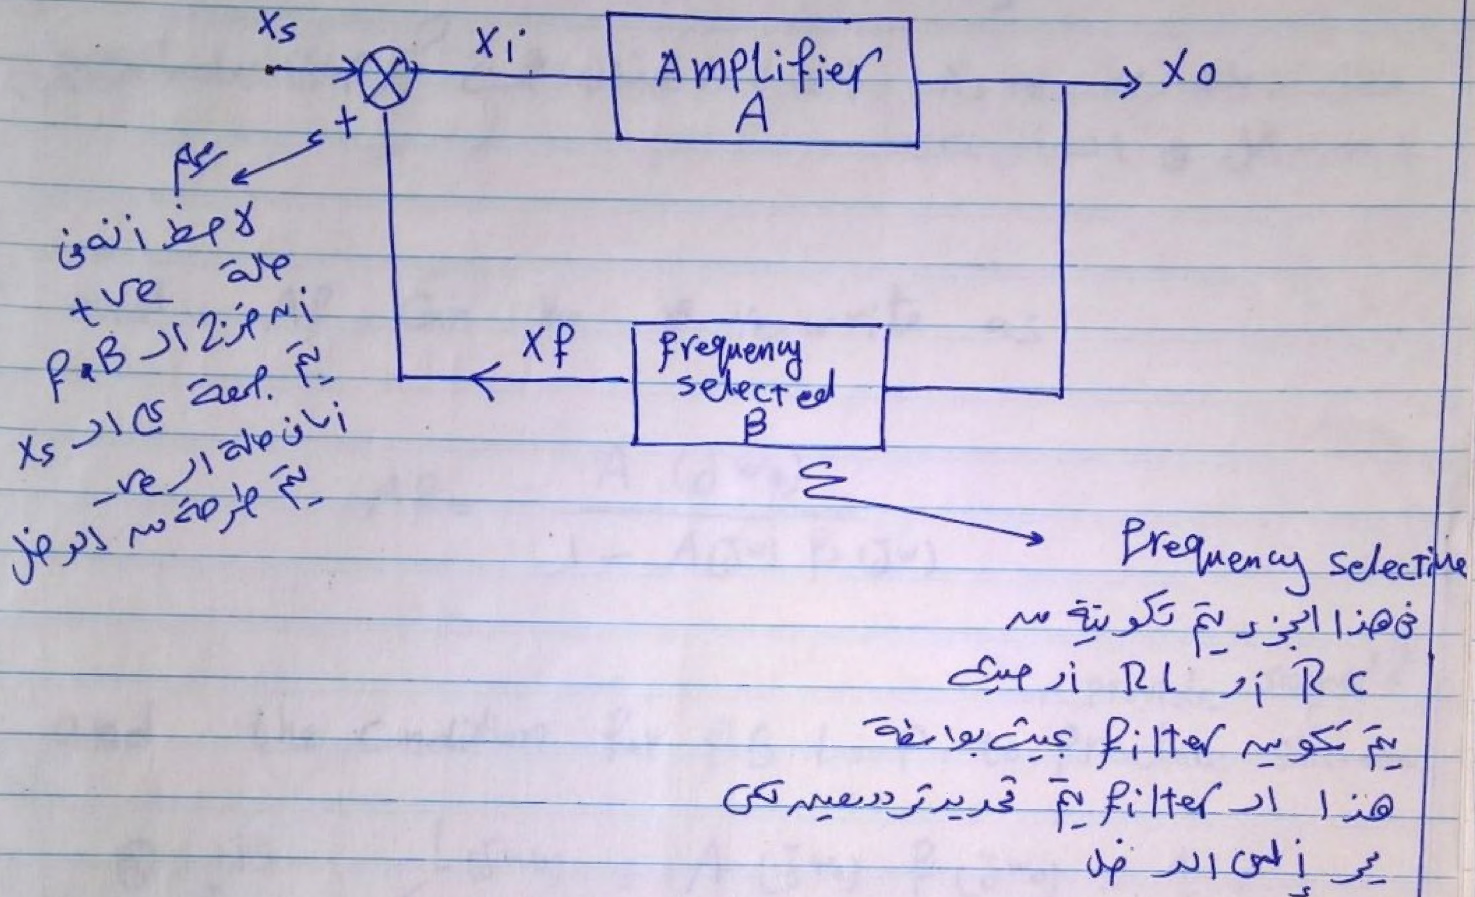 Xs
Xi
Amplifier
A
Xo
+
لاحظ أنه فى
حالة
+ve
الـ
يتم
Xs
حالة الـ
-ve
يتم طرحة من الدخل
Xf
frequency
selected
B
frequency selective
فى هذا الجزء يتم تكوينة من
RC أو RL أو حيث
يتم تكوين filter بحيث بواسطة
هذا الـ filter يتم تحديد تردد معين لكى
يمر إلى الدخل